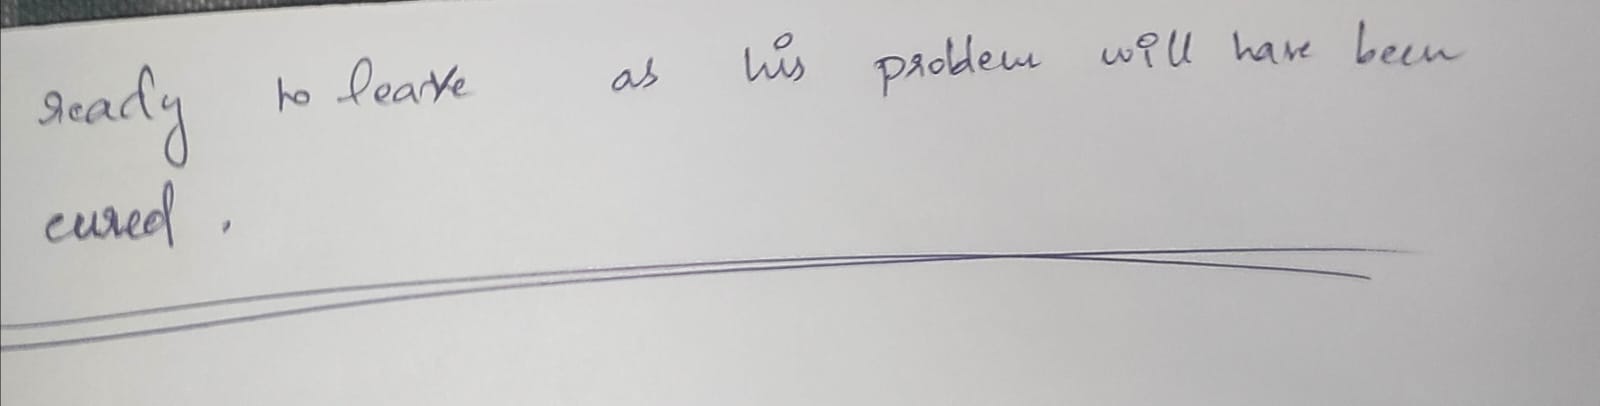 ready to leave as his problem will have been
cured.